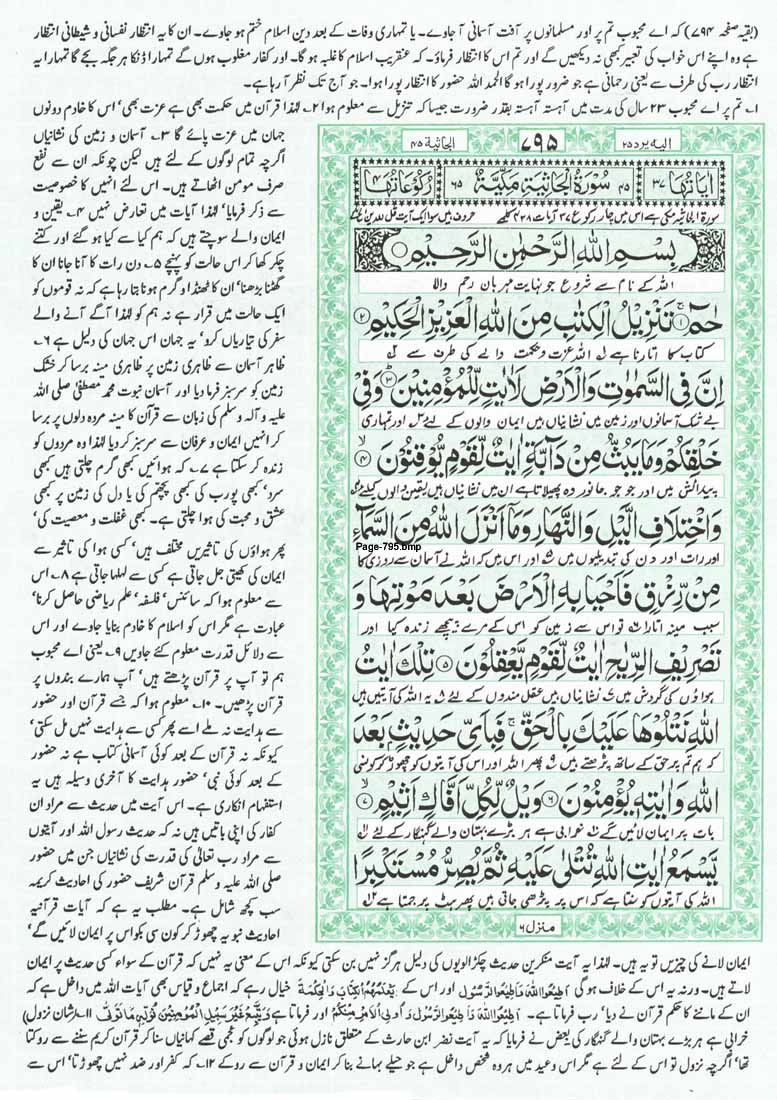 (بقیہ صفحہ ۷۹۴) کہ اے محبوب تم پر اور مسلمانوں پر آفت آسمانی آ جاوے۔ یا تمہاری وفات کے بعد دین اسلام ختم ہو جاوے۔ ان کا یہ انتظار نفسانی و شیطانی انتظار
ہے وہ اپنے اس خواب کی تعبیر کبھی نہ دیکھیں گے اور تم اس کا انتظار فرماؤ۔ کہ عنقریب اسلام کا غلبہ ہو گا۔ اور کفار مغلوب ہوں گے تمہارا ڈنکا ہر جگہ بجے گا تمہارا یہ
انتظار رب کی طرف سے یعنی رحمانی ہے جو ضرور پورا ہو گا الحمد اللہ حضور کا انتظار پورا ہوا۔ جو آج تک نظر آ رہا ہے۔
۱۔ تم پر اے محبوب ۲۳ سال کی مدت میں آہستہ آہستہ بقدر ضرورت جیسا کہ تنزیل سے معلوم ہوا ۲۔ لہذا قرآن میں حکمت بھی ہے عزت بھی' اس کا خادم دونوں
الیه یرد ۲۵
۷۹۵
الجاثیة ۴۵
اٰیَاتُهَا ۳۷
۴۵ سُوْرَةُ الْجَاثِيَةِ مَكِّيَّةٌ ۶۵
رُكُوْعَاتُهَا ۴
بِسْمِ اللّٰهِ الرَّحْمٰنِ الرَّحِيْمِ
اللہ کے نام سے شروع جو نہایت مہربان رحم والا
حٰمٓ ۱ تَنْزِيْلُ الْكِتٰبِ مِنَ اللّٰهِ الْعَزِيْزِ الْحَكِيْمِ ۲
کتاب کا اتارنا ہے اللہ عزت و حکمت والے کی طرف سے
اِنَّ فِى السَّمٰوٰتِ وَالْاَرْضِ لَاٰيٰتٍ لِّلْمُؤْمِنِيْنَ ۳ وَفِىْ
بے شک آسمانوں اور زمین میں نشانیاں ہیں ایمان والوں کے لئے اور تمہاری
خَلْقِكُمْ وَمَا يَبُثُّ مِنْ دَآبَّةٍ اٰيٰتٌ لِّقَوْمٍ يُّوْقِنُوْنَ ۴
پیدائش میں اور جو جو جانور وہ پھیلاتا ہے ان میں نشانیاں ہیں یقین والوں کیلئے
وَاخْتِلَافِ الَّيْلِ وَالنَّهَارِ وَمَآ اَنْزَلَ اللّٰهُ مِنَ السَّمَآءِ
Page-795.bmp
اور رات اور دن کی تبدیلیوں میں اور اس میں کہ اللہ نے آسمان سے روزی کا
مِنْ رِّزْقٍ فَاَحْيَا بِهِ الْاَرْضَ بَعْدَ مَوْتِهَا وَ
سبب مینہ اتارا تو اس سے زمین کو اس کے مرے پیچھے زندہ کیا اور
تَصْرِيْفِ الرِّيٰحِ اٰيٰتٌ لِّقَوْمٍ يَّعْقِلُوْنَ ۵ تِلْكَ اٰيٰتُ
ہواؤں کی گردش میں نشانیاں ہیں عقل مندوں کے لئے یہ اللہ کی آیتیں ہیں
اللّٰهِ نَتْلُوْهَا عَلَيْكَ بِالْحَقِّ فَبِاَىِّ حَدِيْثٍۢ بَعْدَ
کہ ہم تم پر حق کے ساتھ پڑھتے ہیں پھر اللہ اور اس کی آیتوں کو چھوڑ کر کونسی
اللّٰهِ وَاٰيٰتِهٖ يُؤْمِنُوْنَ ۶ وَيْلٌ لِّكُلِّ اَفَّاكٍ اَثِيْمٍ ۷
بات پر ایمان لائیں گے خرابی ہے ہر بڑے بہتان والے گنہگار کے لئے
يَّسْمَعُ اٰيٰتِ اللّٰهِ تُتْلٰى عَلَيْهِ ثُمَّ يُصِرُّ مُسْتَكْبِرًا
اللہ کی آیتوں کو سنتا ہے کہ اس پر پڑھی جاتی ہیں پھر ہٹ پر جمتا ہے
منزل ۶
جہان میں عزت پائے گا ۳۔ آسمان و زمین کی نشانیاں
اگرچہ تمام لوگوں کے لئے ہیں لیکن چونکہ ان سے نفع
صرف مومن اٹھاتے ہیں۔ اس لئے انہیں کا خصوصیت
سے ذکر فرمایا' لہذا آیات میں تعارض نہیں ۴۔ یقین و
ایمان والے سوچتے ہیں کہ ہم کیا سے کیا ہو گئے اور کتنے
چکر کھا کر اس حالت کو پہنچے ۵۔ دن رات کا آنا جانا ان کا
گھٹنا بڑھنا' ان کا ٹھنڈا و گرم ہونا بتا رہا ہے کہ نہ قوموں کو
ایک حالت میں قرار ہے نہ ہم کو لہذا آگے آنے والے
سفر کی تیاریاں کرو' یہ جہان اس جہان کی دلیل ہے ۶۔
ظاہر آسمان سے ظاہری زمین پر ظاہری مینہ برسا کر خشک
زمین کو سرسبز فرما دیا اور آسمان نبوت محمد مصطفٰی صلی اللہ
علیہ و آلہ وسلم کی زبان سے قرآن کا مینہ مردہ دلوں پر برسا
کر انہیں ایمان و عرفان سے سرسبز کر دیا لہذا وہ مردوں کو
زندہ کر سکتا ہے ۷۔ کہ ہوائیں کبھی گرم چلتی ہیں کبھی
سرد' کبھی پورب کی کبھی پچھم کی یا دل کی زمین پر کبھی
عشق و محبت کی ہوا چلتی ہے۔ کبھی غفلت و معصیت کی'
پھر ہواؤں کی تاثیریں مختلف ہیں' کسی ہوا کی تاثیر سے
ایمان کی کھیتی جل جاتی ہے کسی سے لہلہا جاتی ہے ۸۔ اس
سے معلوم ہوا کہ سائنس' فلسفہ' علم ریاضی حاصل کرنا'
عبادت ہے مگر اس کو اسلام کا خادم بنایا جاوے اور اس
سے دلائل قدرت معلوم کئے جاویں ۹۔ یعنی اے محبوب
ہم تو آپ پر قرآن پڑھتے ہیں' آپ ہمارے بندوں پر
قرآن پڑھیں۔ ۱۰۔ معلوم ہوا کہ جسے قرآن اور حضور
سے ہدایت نہ ملے اسے پھر کسی سے ہدایت نہیں مل سکتی'
کیونکہ نہ قرآن کے بعد کوئی آسمانی کتاب ہے نہ حضور
کے بعد کوئی نبی' حضور ہدایت کا آخری وسیلہ ہیں یہ
استفہام انکاری ہے۔ اس آیت میں حدیث سے مراد ان
کفار کی اپنی باتیں ہیں نہ کہ حدیث رسول اللہ اور آیتوں
سے مراد رب تعالٰی کی قدرت کی نشانیاں جن میں حضور
صلی اللہ علیہ وسلم قرآن شریف حضور کی احادیث کریمہ
سب کچھ شامل ہے۔ مطلب یہ ہے کہ آیات قرآنیہ
احادیث نبویہ چھوڑ کر کون سی بکواس پر ایمان لائیں گے'
ایمان لانے کی چیزیں تو یہ ہیں۔ لہذا یہ آیت منکرین حدیث چکڑالویوں کی دلیل ہرگز نہیں بن سکتی کیونکہ اس کے معنی یہ نہیں کہ قرآن کے سواء کسی حدیث پر ایمان
لاتے ہیں۔ ورنہ یہ اس کے خلاف ہو گی اَطِیْعُوا اللّٰہَ وَاَطِیْعُوا الرَّسُوْلَ اور اس کے یُعَلِّمُهُمُ الْكِتَابَ وَالْحِكْمَةَ خیال رہے کہ اجماع و قیاس بھی آیات اللہ میں داخل ہے کہ
ان کے ماننے کا حکم قرآن نے دیا' رب فرماتا ہے۔ اَطِیْعُوا اللّٰہَ وَاَطِیْعُوا الرَّسُوْلَ وَاُولِی الْاَمْرِ مِنْكُمْ اور فرماتا ہے وَیَتَّبِعْ غَیْرَ سَبِیْلِ الْمُؤْمِنِیْنَ نُوَلِّهٖ مَا تَوَلّٰی ۱۱۔ (شان نزول)
خرابی ہے ہر بڑے بہتان والے گنہگار کی بعض نے فرمایا کہ یہ آیت نضر ابن حارث کے متعلق نازل ہوئی جو لوگوں کو عجمی قصے کہانیاں سنا کر قرآن کریم سننے سے روکتا
تھا' اگرچہ نزول تو اس کے لئے ہے مگر اس وعید میں ہر وہ شخص داخل ہے جو حیلے بہانے بنا کر ایمان و قرآن سے روکے ۱۲۔ کہ کفر اور ضد نہیں چھوڑتا' اس سے